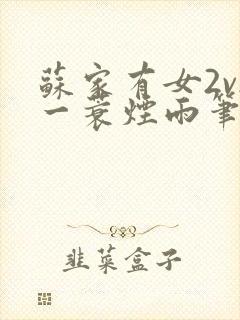 蘇家有女2v
一蓑煙雨筆
韭菜盒子